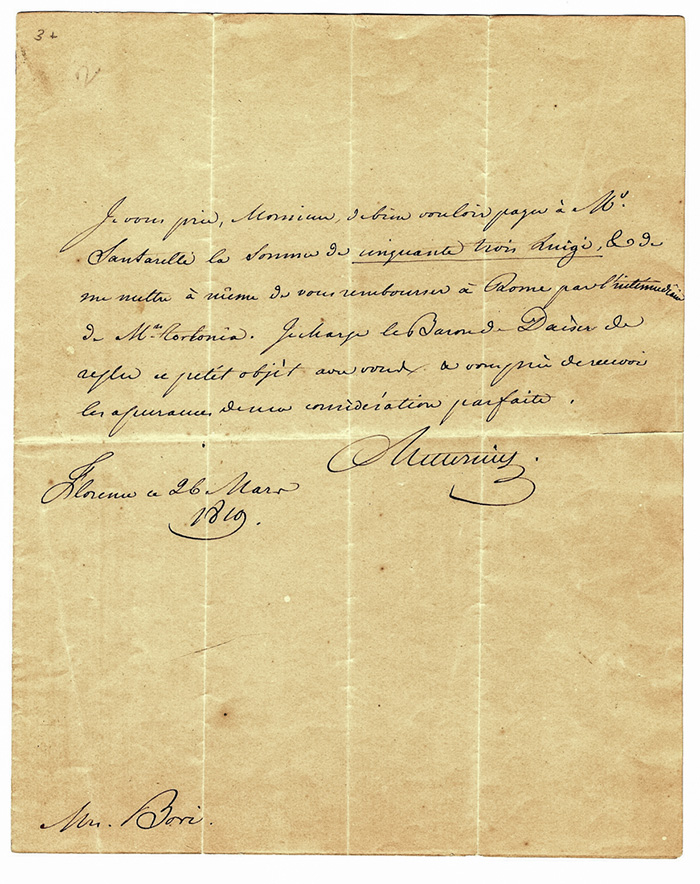 3 +
2
Je vous prie, Monsieur, de bien vouloir payer à Mr.
Santarelli la Somme de cinquante trois Luigi, & de
me mettre à même de vous rembourser à Rome par l'intermédiaire
de Mr. Torlonia. Je charge le Baron de Daiser de
regler ce petit objèt avec vous & vous prie de recevoir
les assurances de ma considération parfaite.
Metternich.
Florence ce 26 Mars
1819.
Mr. Bori.